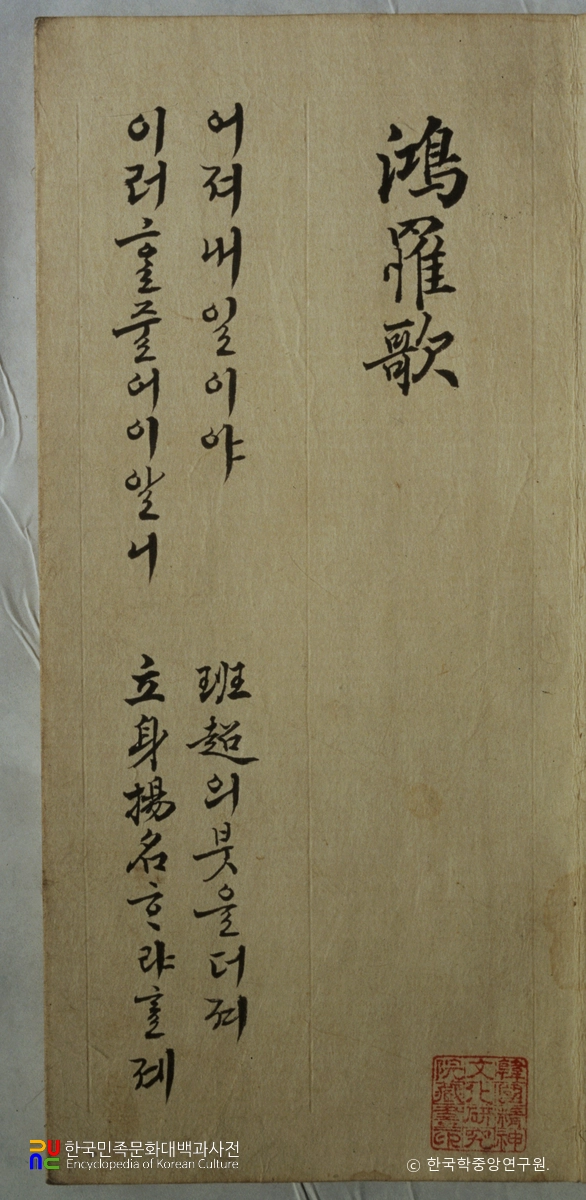 鴻羅歌
어져내일이야
이러ᄒᆞᆯ줄어이알니
班超의붓을더져
立身揚名ᄒᆞ랴ᄒᆞᆯ졔
韓國精神
文化硏究
院藏書印
한국민족문화대백과사전
Encyclopedia of Korean Culture
ⓒ 한국학중앙연구원.